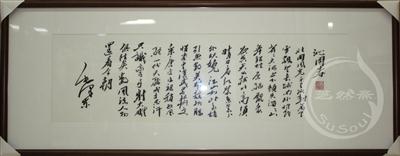 沁園春
北國風光千里冰封萬里
雪飄望長城内外惟餘莽
莽大河上下頓失滔滔山
舞銀蛇原馳蠟象
欲與天公試比高須
晴日看紅裝素裹分
外妖嬈江山如此多嬌
引無數英雄競折腰
惜秦皇漢武略輸文
采唐宗宋祖稍遜風
騷一代天驕成吉思汗
只識彎弓射大雕
俱往矣數風流人物
還看今朝
毛澤東
SuSoul